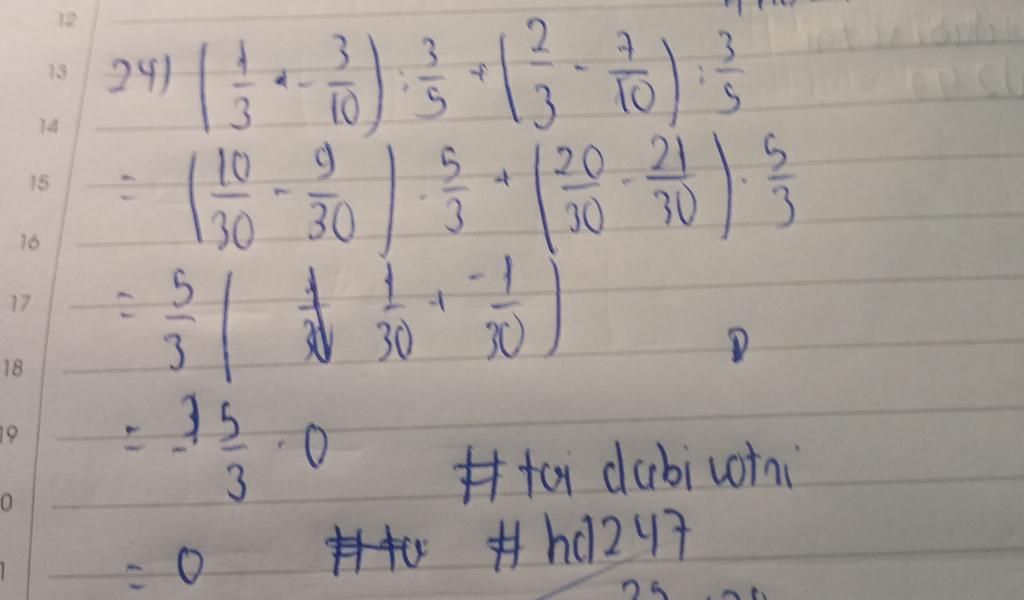 12
13 24) (1/3 - 3/10) : 3/5 + (2/3 - 7/10) : 3/5
14
15 = (10/30 - 9/30) . 5/3 + (20/30 - 21/30) . 5/3
16
17 = 5/3 ( 1/30 + -1/30 )
18
19 = 5/3 . 0
# toi dabi cotni
= 0 # hd1247